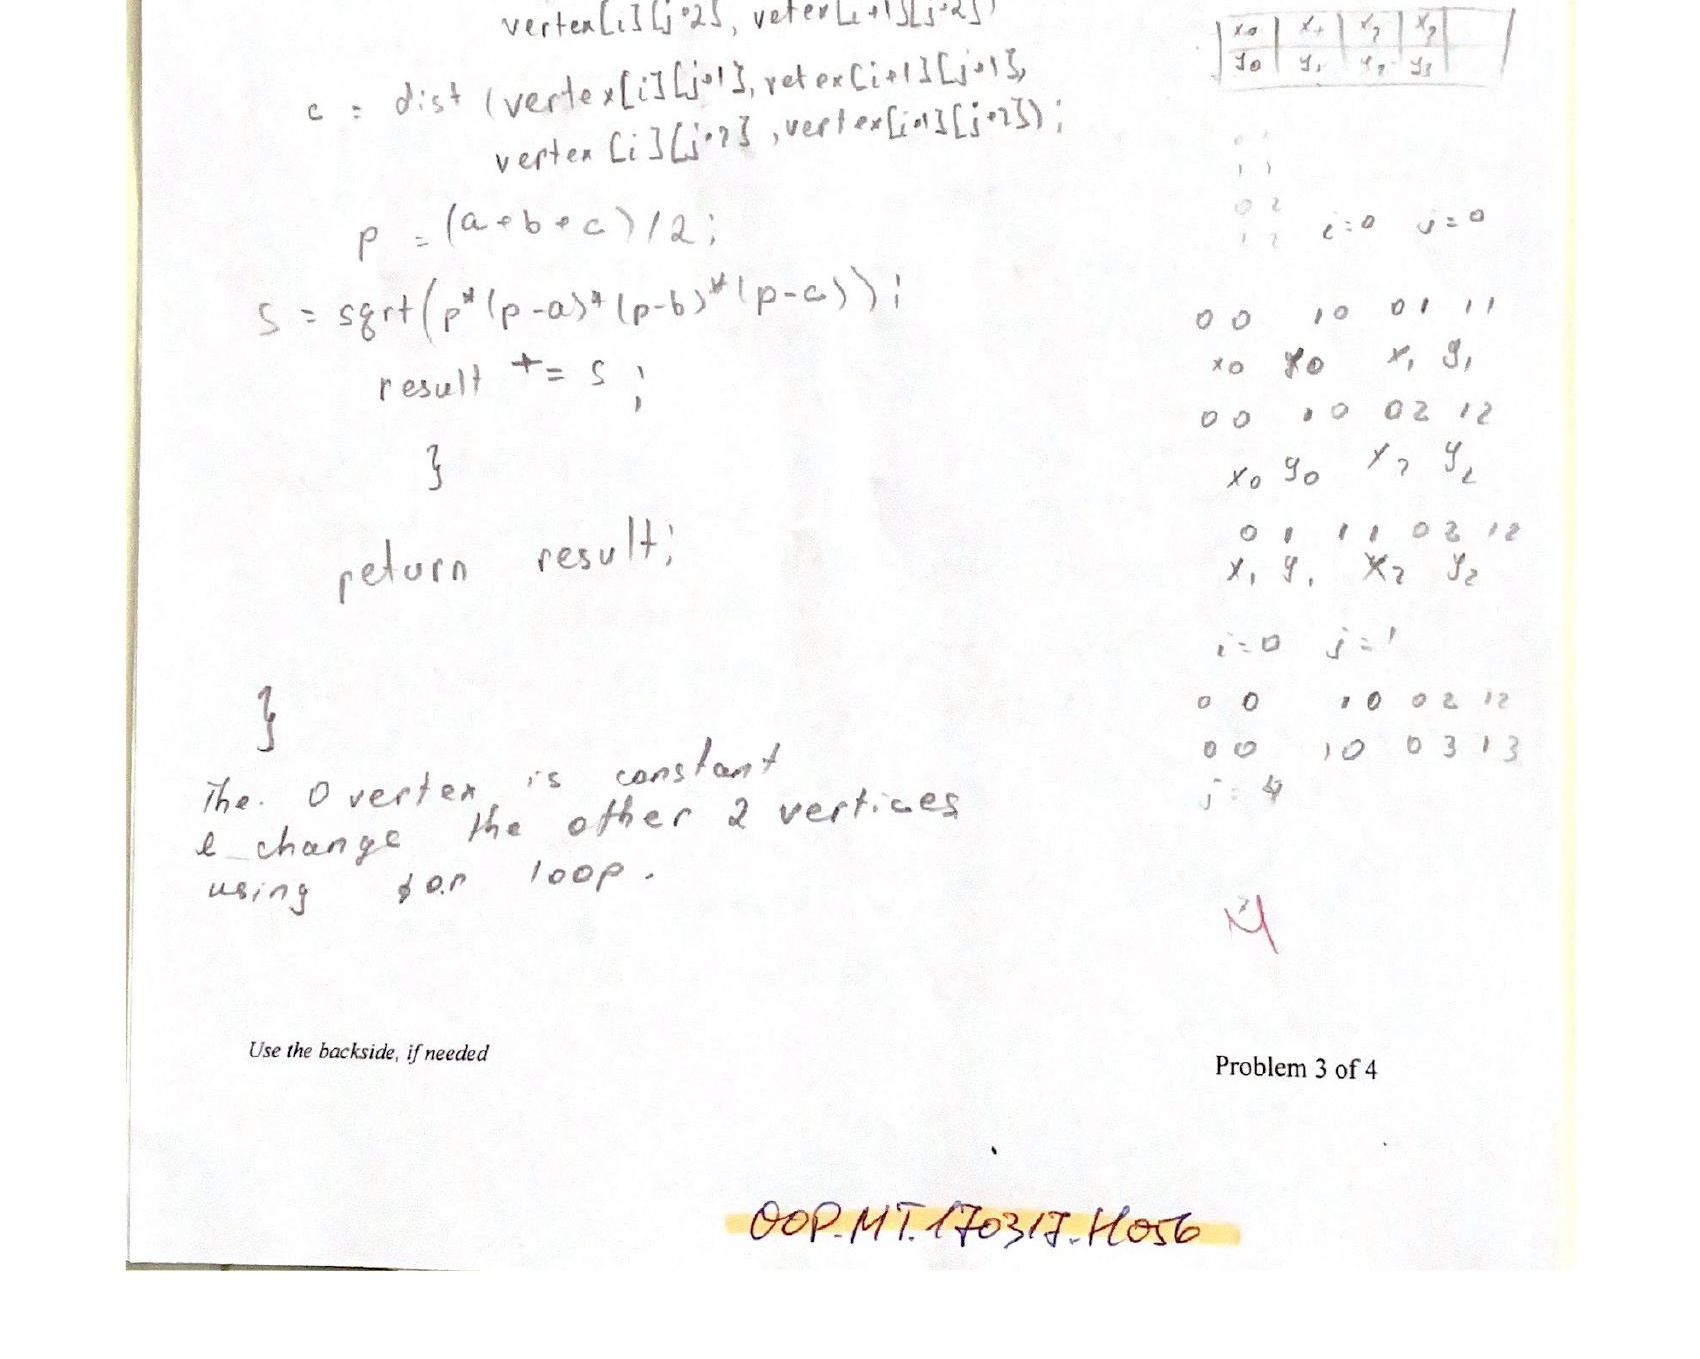 vertex[i][j+2], vetex[i+1][j+2])
c = dist (vertex[i][j+1], vetex[i+1][j+1],
vertex [i][j+2], vertex[i+1][j+2]);
p = (a+b+c)/2;
s = sqrt(p*(p-a)*(p-b)*(p-c));
result += s;
}
return result;
}
The 0 vertex is constant
change the other 2 vertices
using for loop.
x0 x1 x2 x3
y0 y1 y2 y3
1 1
0 2
1 2 i=0 j=0
0 0 1 0 0 1 1 1
x0 y0 x1 y1
0 0 1 0 0 2 1 2
x0 y0 x2 y2
0 1 1 1 0 2 1 2
x1 y1 x2 y2
i=0 j=1
0 0 1 0 0 2 1 2
0 0 1 0 0 3 1 3
j = 4
Use the backside, if needed
Problem 3 of 4
OOP.MT.170317.H056